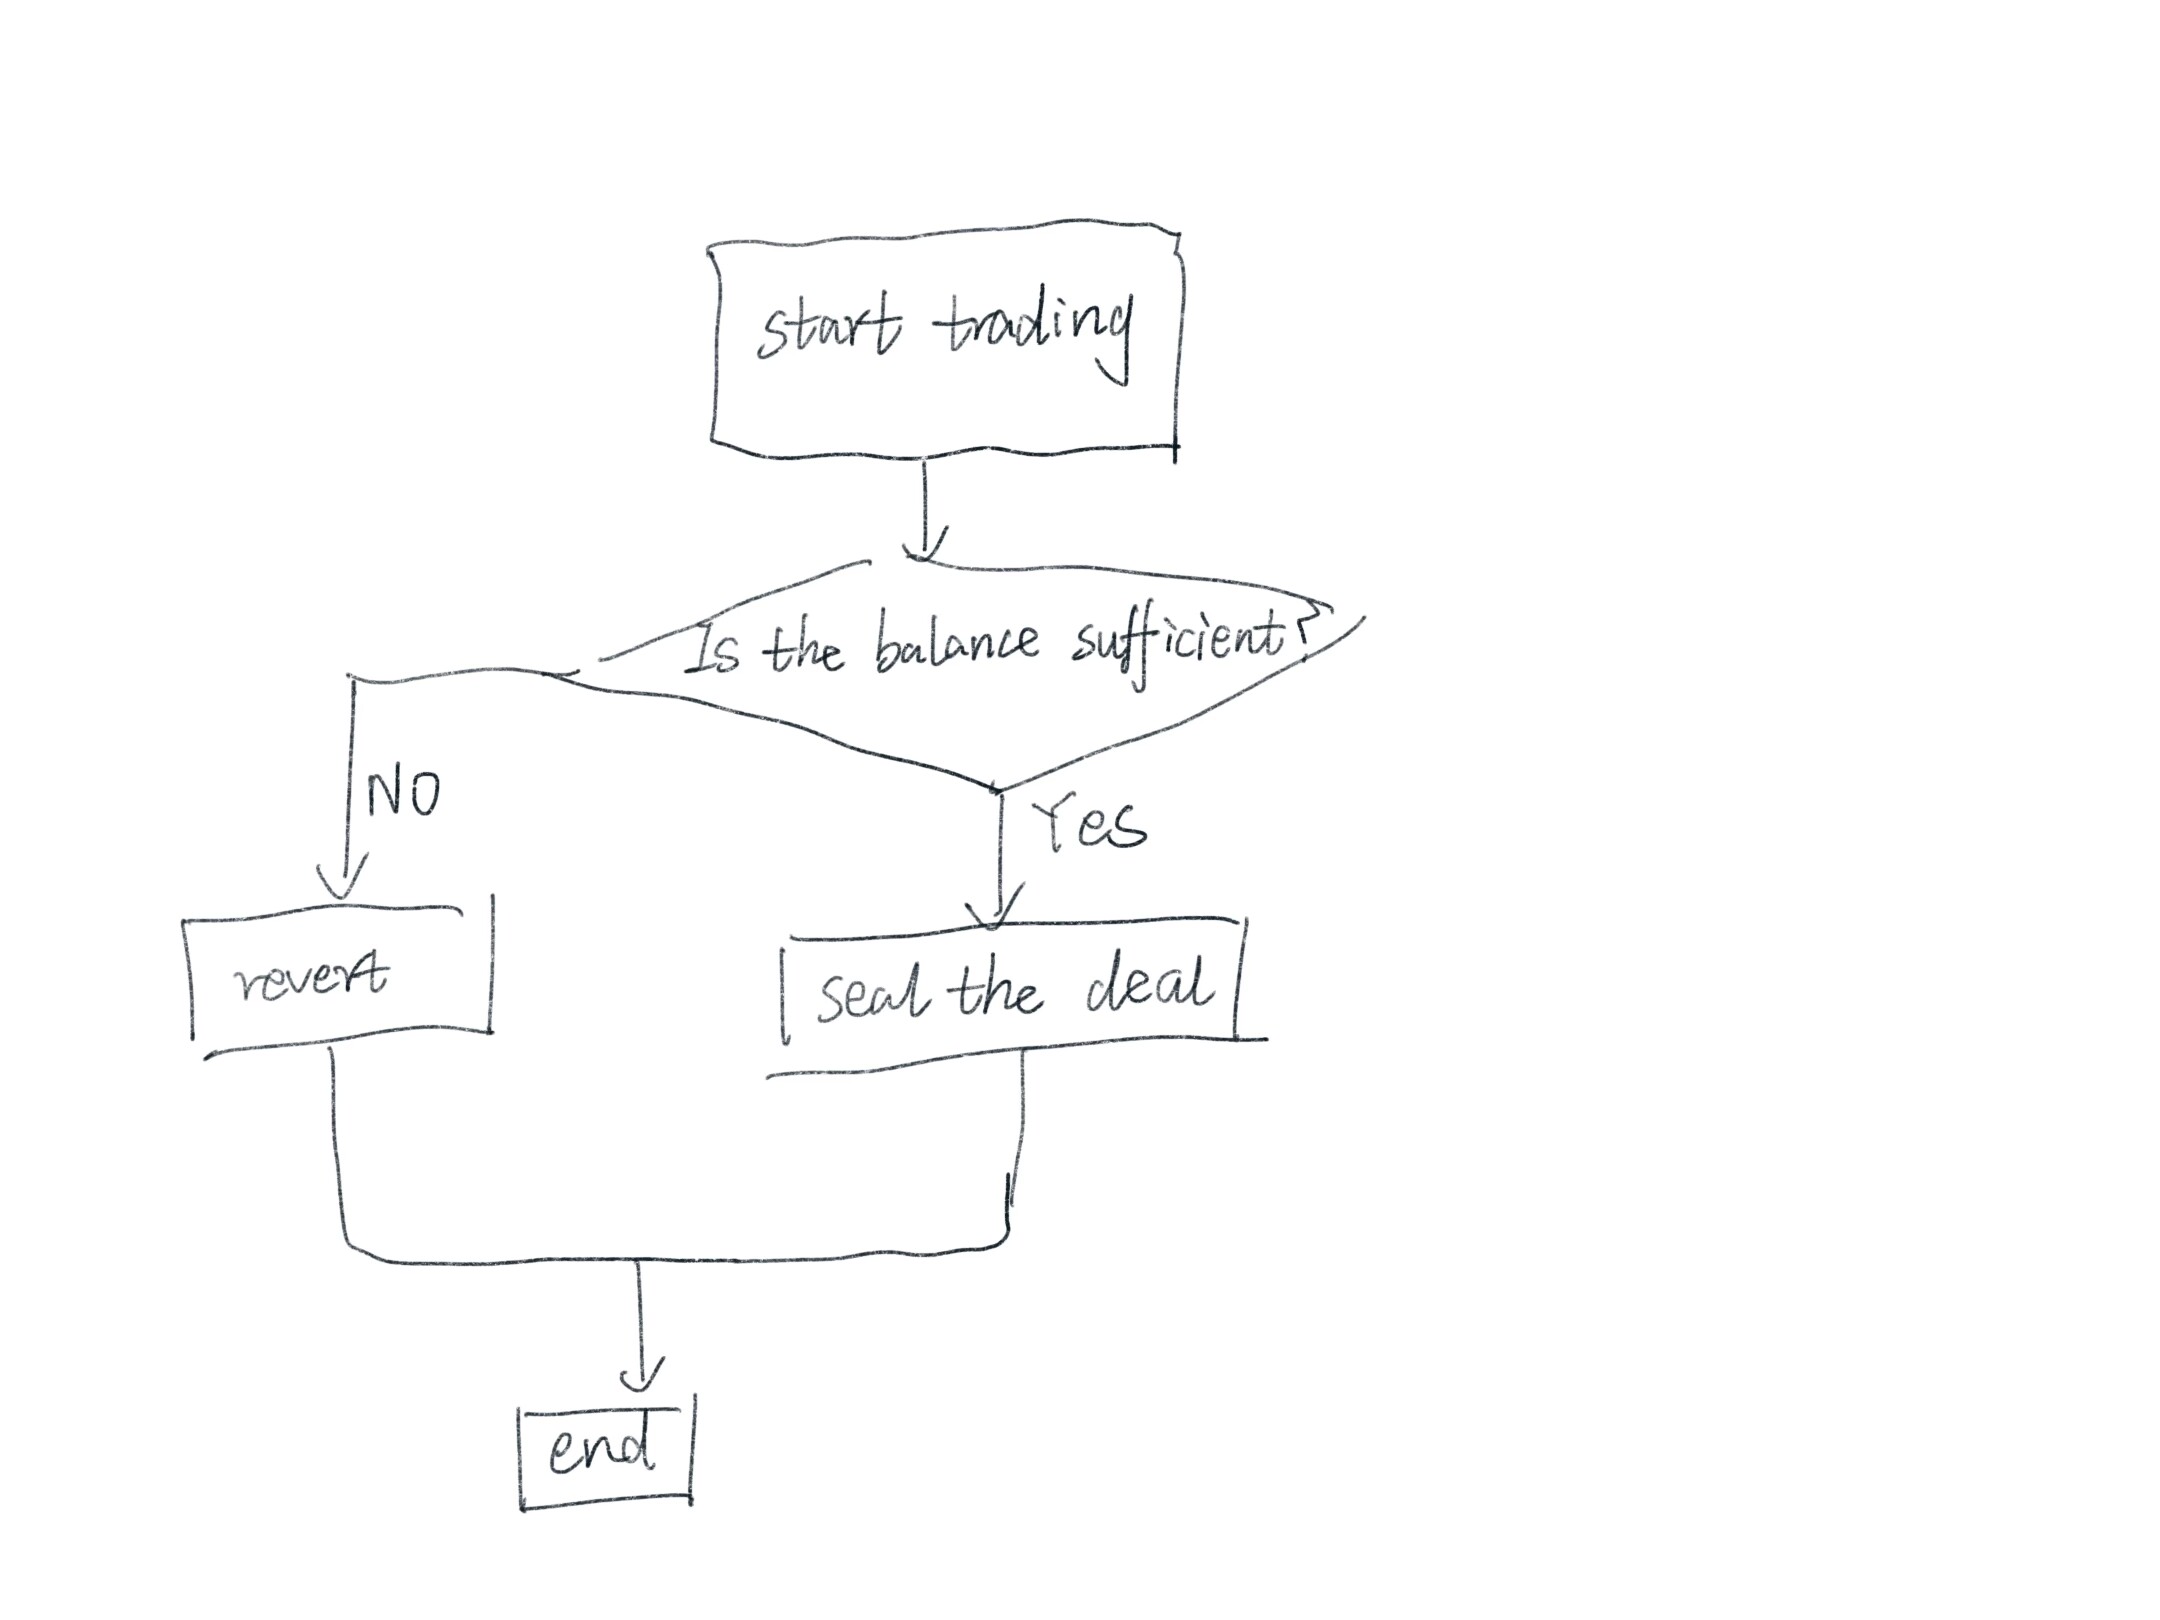 start trading
Is the balance sufficient?
NO
Yes
revert
seal the deal
end